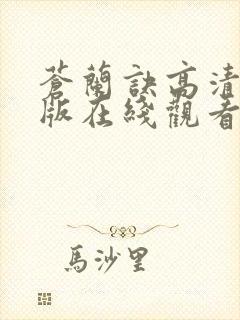 蒼蘭訣高清
版在綫觀看
馬沙里